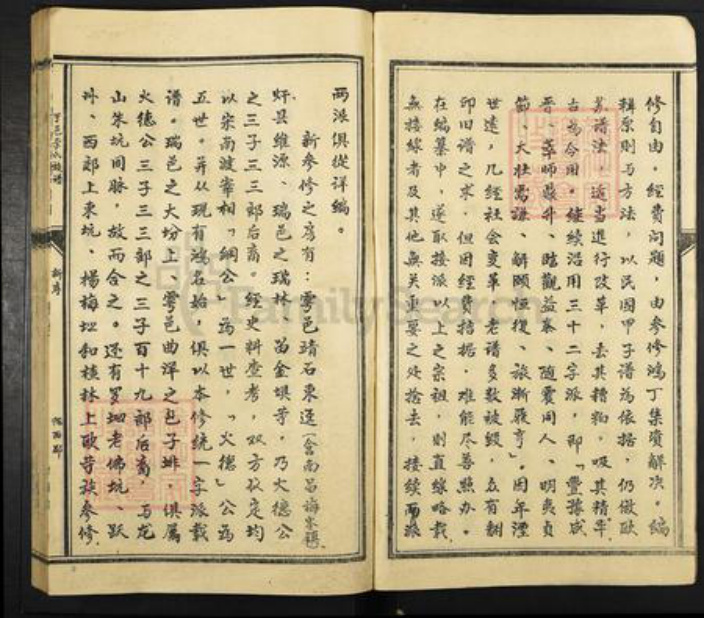 修自由,经费问题,由参修鸿丁集资解决。编
辑原则与方法,以民国甲子谱为依据,仍仿欧
苏谱法,适当进行改革,去其糟粕,吸其精华
古为今用。继续沿用三十二字派,即「豐豫咸
晋、萃师鼎升、临觀益泰、随震同人、明夷贞
節、大壮需谦、解颐恒復、旅渐履亨」。因年湮
世遠,几经社会变革,老谱多数被毁,亟有翻
印旧谱之求,但因经费拮据,难能尽善照办。
在编纂中,遂取接派以上之宗祖,则直線略载
無接線者及其他無关重要之处捨去,接续两派
两派俱從详编。
新参修之房有:雩邑靖石東迳(含南昌梅岺
虷县维源、瑞邑之瑞林、留金垻等,乃火德公
之三子三三郎后裔。经史料查考,双方议定均
以宋南渡宰相「綱公」為一世,「火德」公為
五世。并从现有鸿名始,俱以本修统一字派载
谱。瑞邑之大坋上、雩邑曲洋之包子排,俱属
火德公三子三三郎之三子百十九郎后裔,与龙
山朱坑同脉,故而合之。还有罗坳老佛坑、跃
圤、西郊上東坑、楊梅坵和横林上欧等族参修
新序
陇西郡